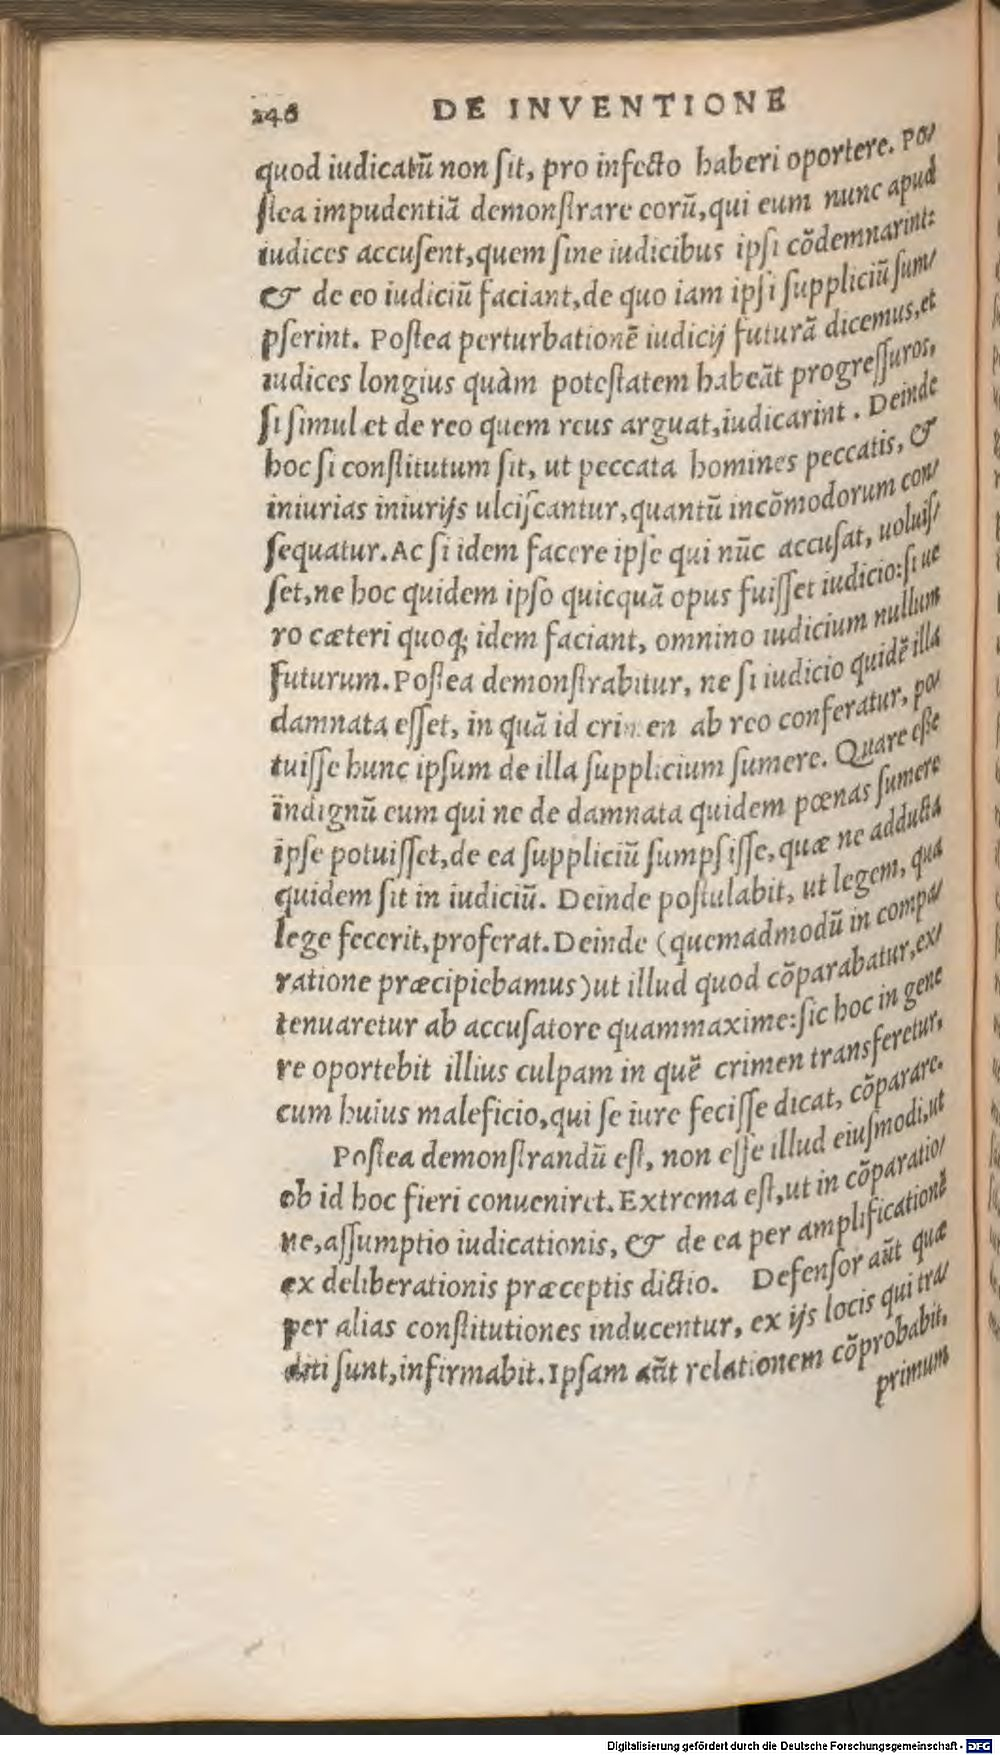 246 DE INVENTIONE
quod iudicatũ non ſit, pro infecto haberi oportere. Po/
ſtea impudentiã demonſtrare eorũ, qui eum nunc apud
iudices accuſent, quem ſine iudicibus ipſi cõdemnarint:
& de eo iudiciũ faciant, de quo iam ipſi ſuppliciũ ſum/
pſerint. Poſtea perturbationẽ iudicij futurã dicemus, et
iudices longius quàm poteſtatem habeãt progreſſuros,
ſi ſimul et de reo quem reus arguat, iudicarint. Deinde
hoc ſi conſtitutum ſit, ut peccata homines peccatis, &
iniurias iniurijs ulciſcantur, quantũ incõmodorum con/
ſequatur. Ac ſi idem facere ipſe qui nũc accuſat, uoluiſ/
ſet, ne hoc quidem ipſo quicquã opus fuiſſet iudicio: ſi ue
ro cæteri quoq; idem faciant, omnino iudicium nullum
futurum. Poſtea demonſtrabitur, ne ſi iudicio quidẽ illa
damnata eſſet, in quã id crimen ab reo conferatur, po/
tuiſſe hunc ipſum de illa ſupplicium ſumere. Quare eſſe
indignũ eum qui ne de damnata quidem pœnas ſumere
ipſe potuiſſet, de ea ſuppliciũ ſumpſiſſe, quæ ne adducta
quidem ſit in iudiciũ. Deinde poſtulabit, ut legem, qua
lege fecerit, proferat. Deinde (quemadmodũ in compa/
ratione præcipiebamus) ut illud quod cõparabatur, ex/
tenuaretur ab accuſatore quammaxime: ſic hoc in gene
re oportebit illius culpam in quẽ crimen transferetur,
cum huius maleficio, qui ſe iure feciſſe dicat, cõparare.
Poſtea demonſtrandũ eſt, non eſſe illud eiuſmodi, ut
ob id hoc fieri conueniret. Extrema eſt, ut in cõparatio/
ne, aſſumptio iudicationis, & de ea per amplificationẽ
ex deliberationis præceptis dictio. Defenſor aũt quæ
per alias conſtitutiones inducentur, ex ijs locis qui tra/
diti ſunt, infirmabit. Ipſam aũt relationem cõprobabit,
primum
Digitalisierung gefördert durch die Deutsche Forschungsgemeinschaft - DFG